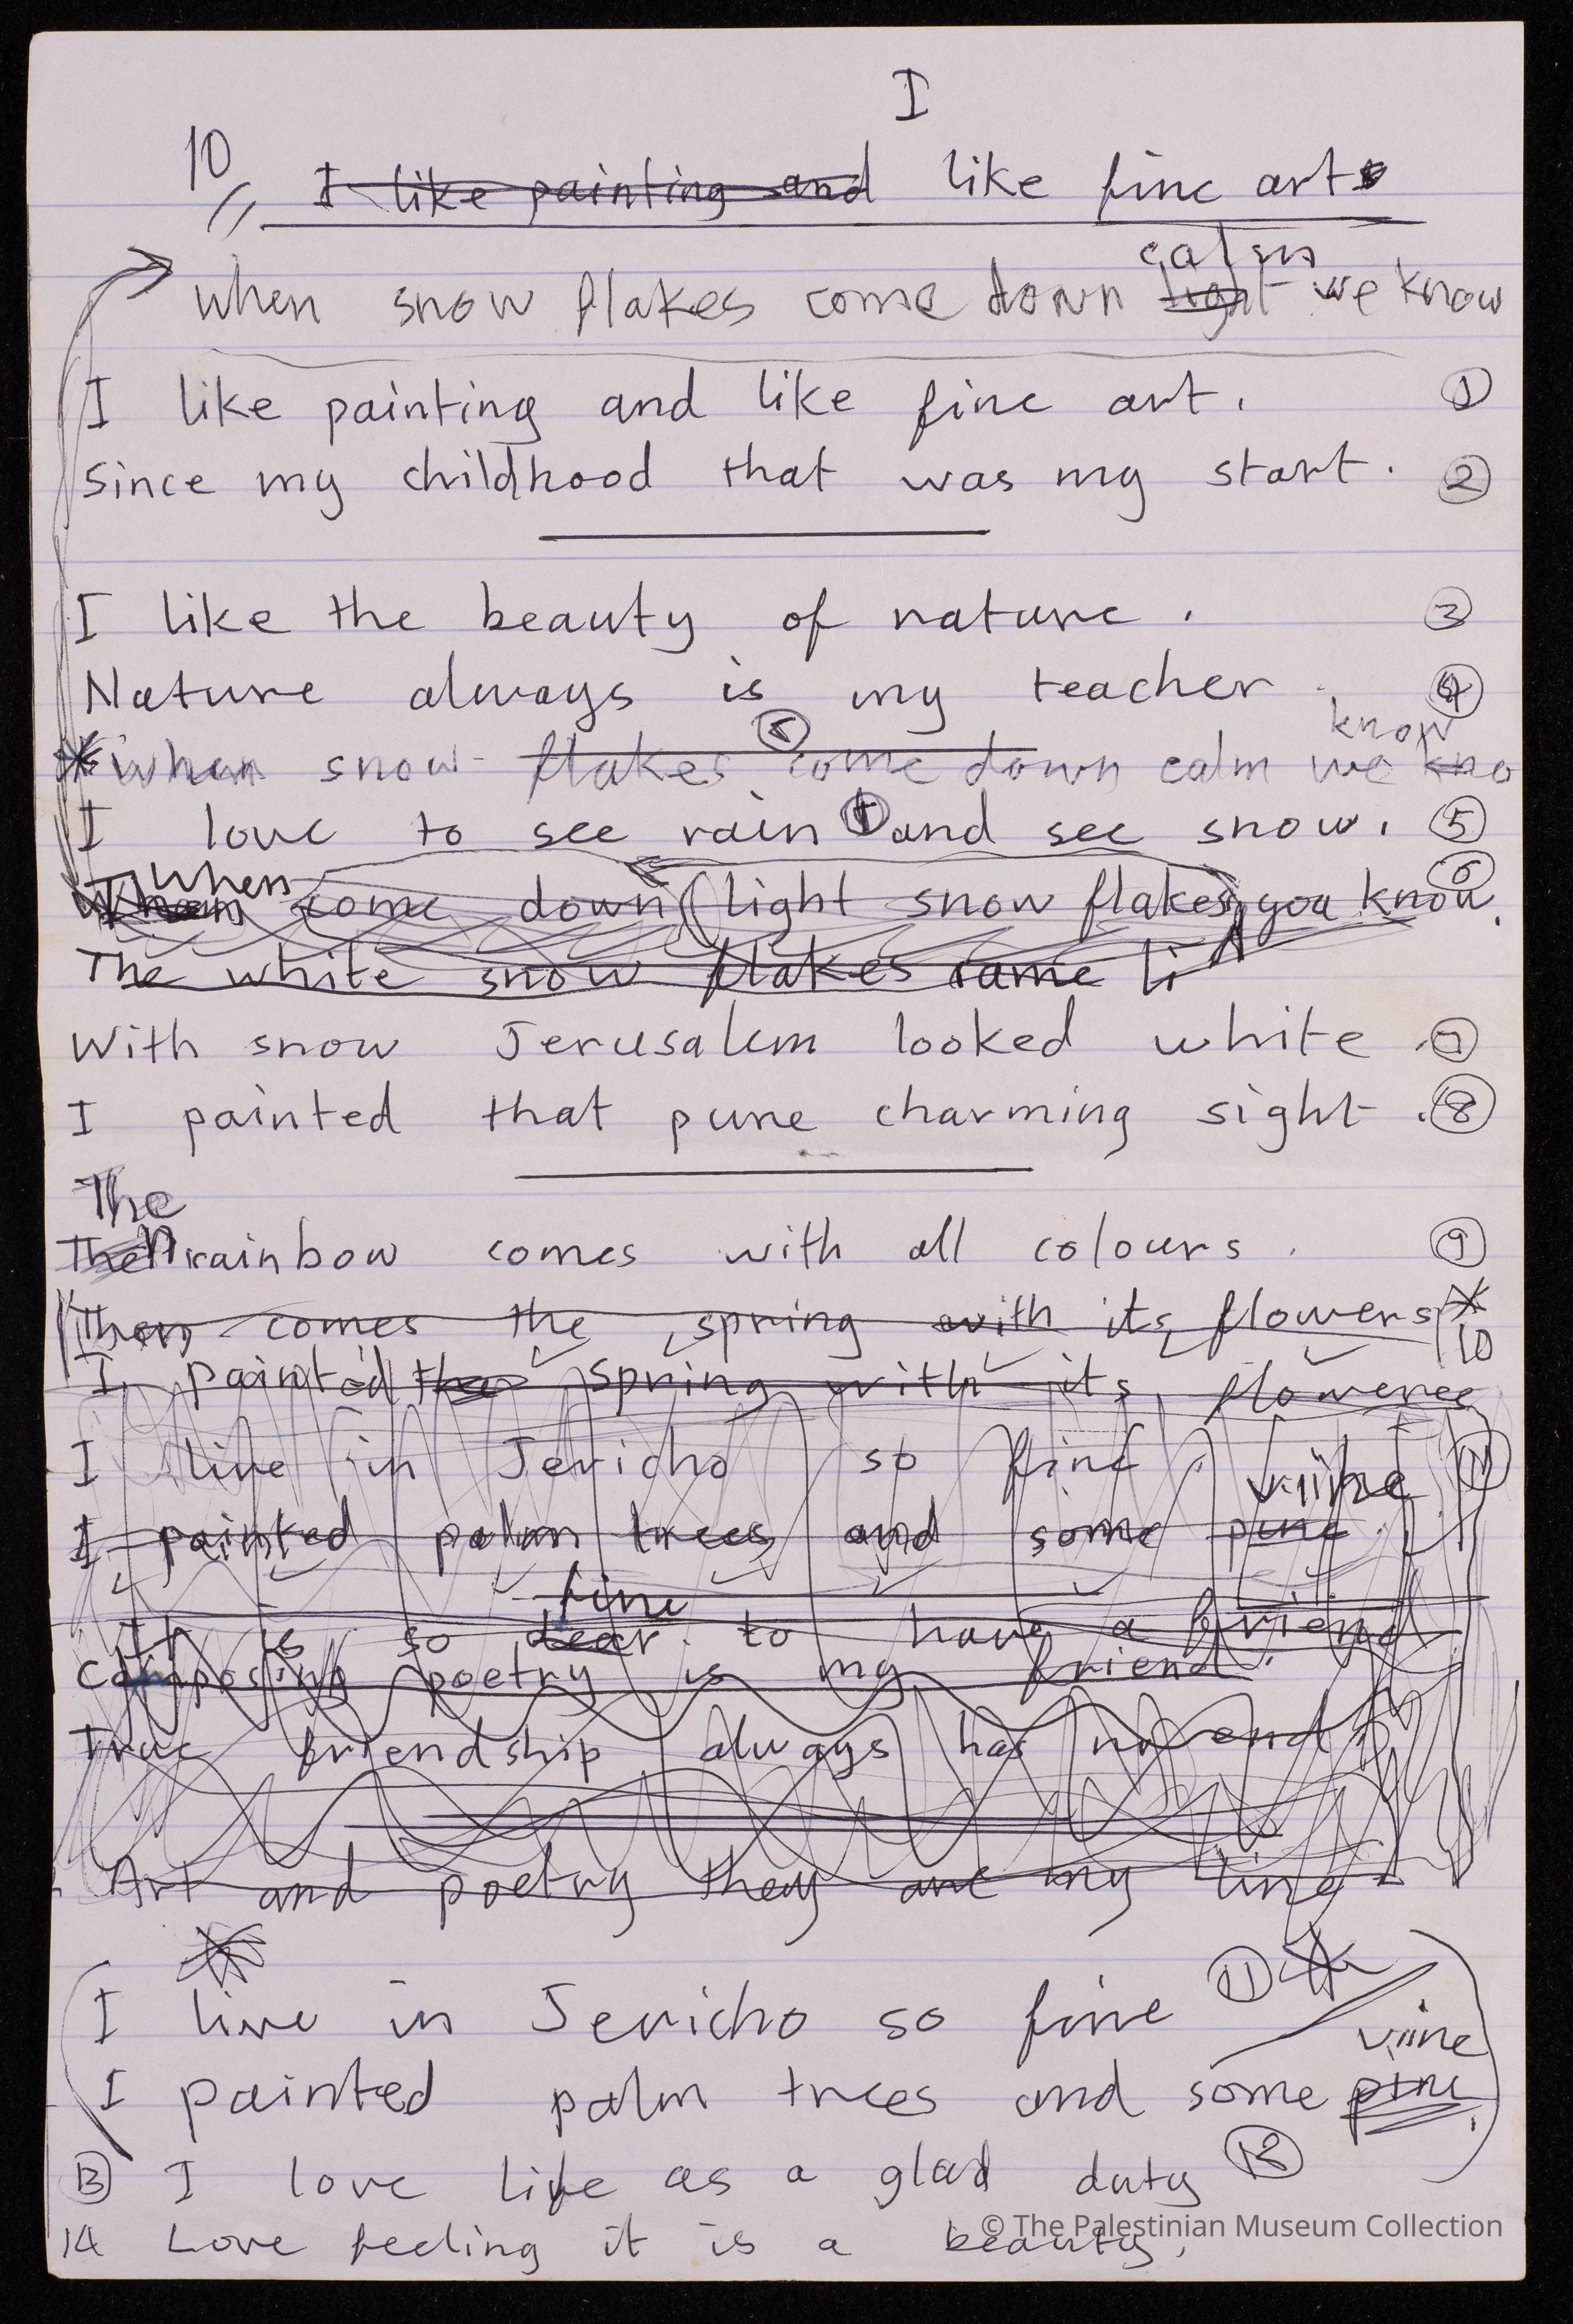 I
10 I like painting and like fine art
calm
when snow flakes come down light we know
I like painting and like fine art. 1
Since my childhood that was my start. 2
I like the beauty of nature. 3
Nature always is my teacher. 4
know
when snow flakes come down calm we kno
I love to see rain and see snow. 5
when 6
When come down (light snow flakes) you know.
The white snow flakes came li
With snow Jerusalem looked white. 7
I painted that pure charming sight. 8
The
Then rainbow comes with all colours. 9
Then comes the spring with its flowers 10
I painted the spring with its flowers
I live in Jericho so fine. 11
viine
I painted palm trees and some pine.
fine
It is so dear to have a friend
Composing poetry is my friend.
True friendship always has no end.
Art and poetry they are my line
I live in Jericho so fine 11
viine
I painted palm trees and some pine.
12
13 I love life as a glad duty
14 Love feeling it is a beauty.
© The Palestinian Museum Collection